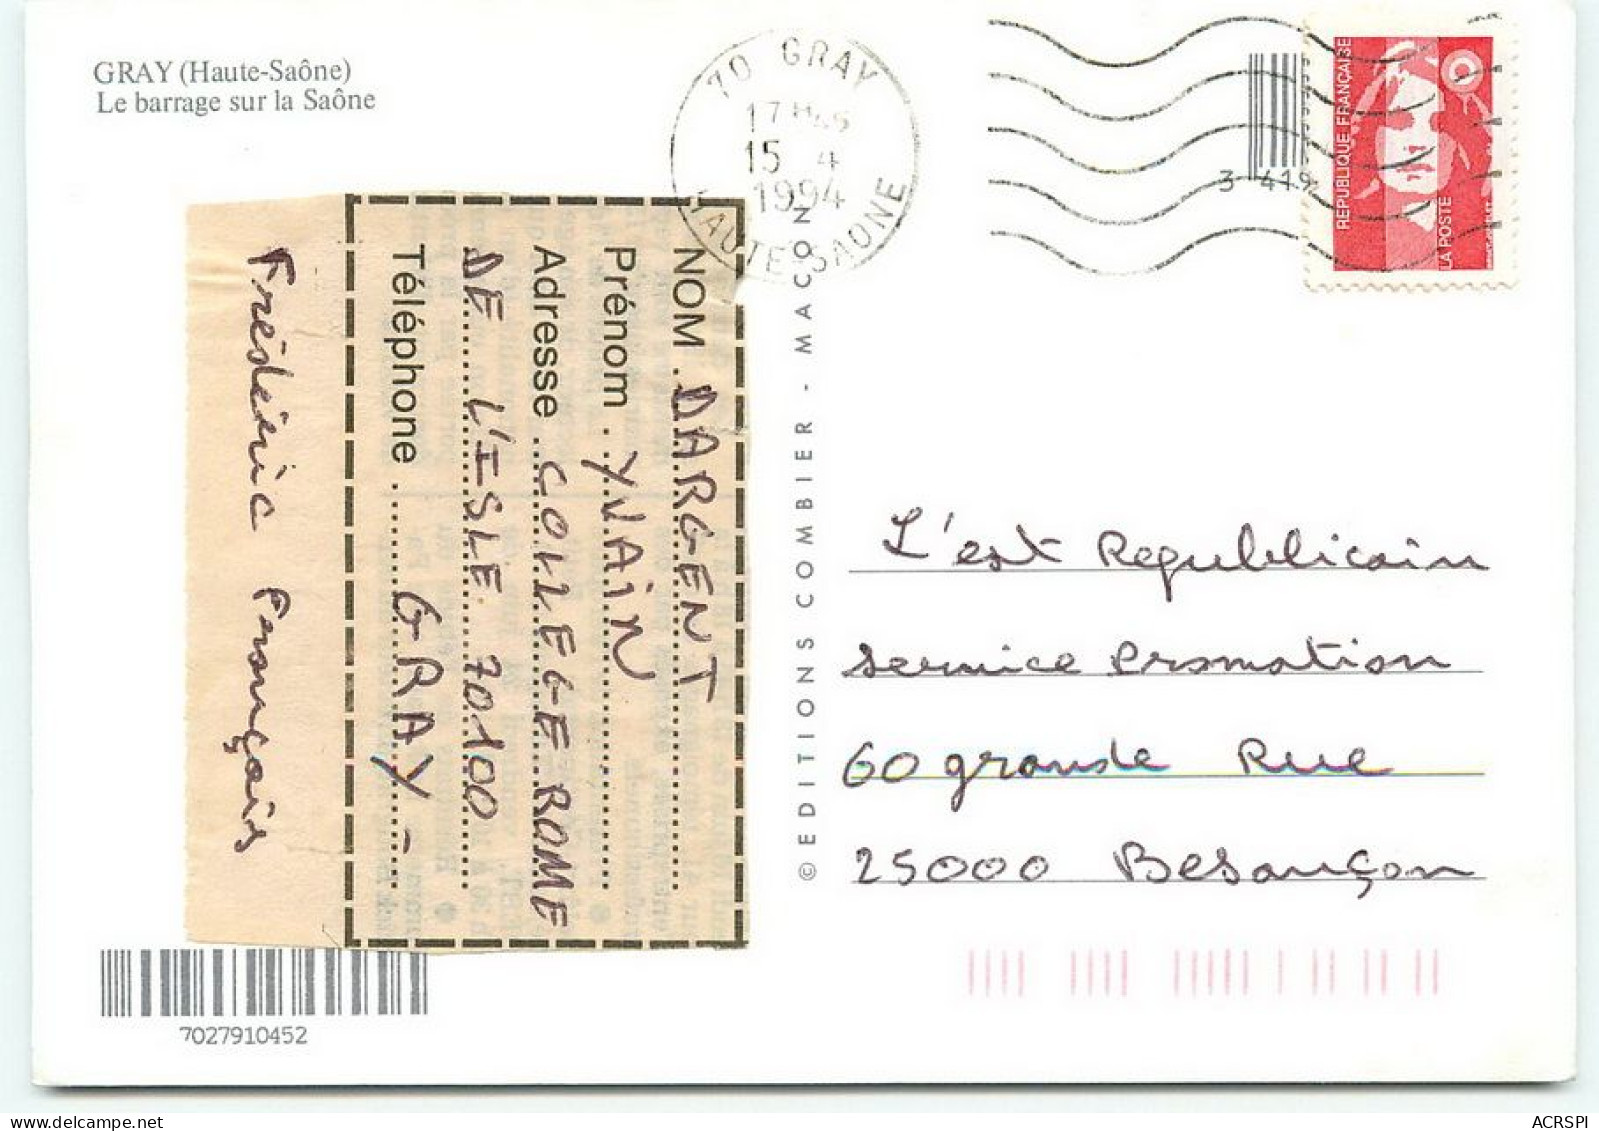 GRAY (Haute-Saône)
Le barrage sur la Saône
70 GRAY
17 H
15 4
1994
HAUTE-SAONE
3 419
REPUBLIQUE FRANÇAISE
LA POSTE
NOM DARGENT
Prénom YVAIN
Adresse COLLEGE ROME
DE L'ISLE 70100
Téléphone GRAY -
Frédéric François
© EDITIONS COMBIER - MACON
L'est Republicain
Service Promotion
60 grande Rue
25000 Besançon
7027910452
ACRSPI